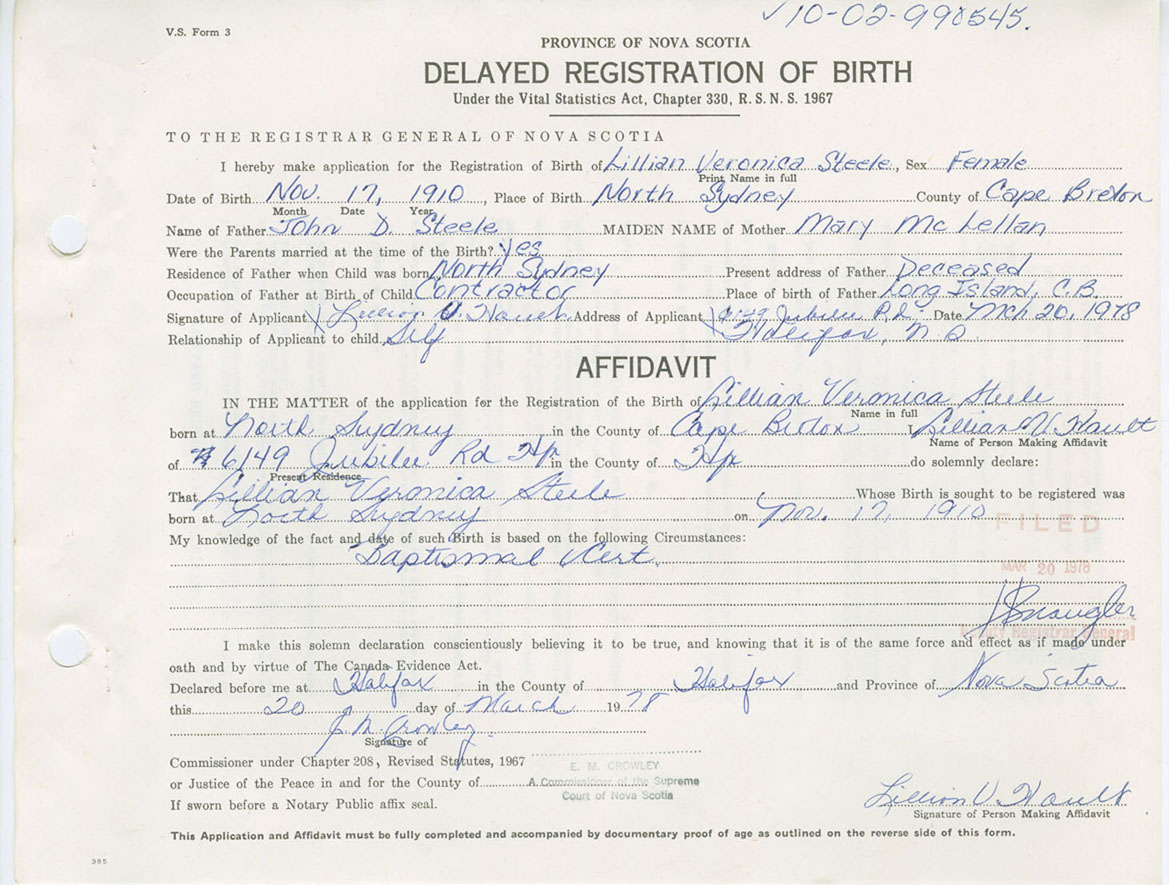 ✓10-02-990545.
V.S. Form 3
PROVINCE OF NOVA SCOTIA
DELAYED REGISTRATION OF BIRTH
Under the Vital Statistics Act, Chapter 330, R. S. N. S. 1967
TO THE REGISTRAR GENERAL OF NOVA SCOTIA
I hereby make application for the Registration of Birth of Lillian Veronica Steele, Sex Female
Print Name in full
Date of Birth Nov. 17, 1910, Place of Birth North Sydney County of Cape Breton
Month Date Year
Name of Father John D. Steele MAIDEN NAME of Mother Mary McLellan
Were the Parents married at the time of the Birth? Yes
Residence of Father when Child was born North Sydney Present address of Father Deceased
Occupation of Father at Birth of Child Contractor Place of birth of Father Long Island, C.B.
Signature of Applicant Lillian V. Hault Address of Applicant 6149 Jubilee Rd. Date Mch 20, 1978
Relationship of Applicant to child Self Halifax, N S
AFFIDAVIT
IN THE MATTER of the application for the Registration of the Birth of Lillian Veronica Steele
Name in full
born at North Sydney in the County of Cape Breton I, Lillian V. Hault
Name of Person Making Affidavit
of 6149 Jubilee Rd Hfx in the County of Hfx do solemnly declare:
Present Residence
That Lillian Veronica Steele Whose Birth is sought to be registered was
born at North Sydney on Nov. 17, 1910
FILED
My knowledge of the fact and date of such Birth is based on the following Circumstances:
Baptismal Cert.
MAR 20 1978
Deputy Registrar General
I make this solemn declaration conscientiously believing it to be true, and knowing that it is of the same force and effect as if made under
oath and by virtue of The Canada Evidence Act.
Declared before me at Halifax in the County of Halifax and Province of Nova Scotia
this 20 day of March 1978
E. M. Crowley
Signature of
Commissioner under Chapter 208, Revised Statutes, 1967
E. M. CROWLEY
or Justice of the Peace in and for the County of
A Commissioner of the Supreme
Court of Nova Scotia
If sworn before a Notary Public affix seal.
Lillian V. Hault
Signature of Person Making Affidavit
This Application and Affidavit must be fully completed and accompanied by documentary proof of age as outlined on the reverse side of this form.
385